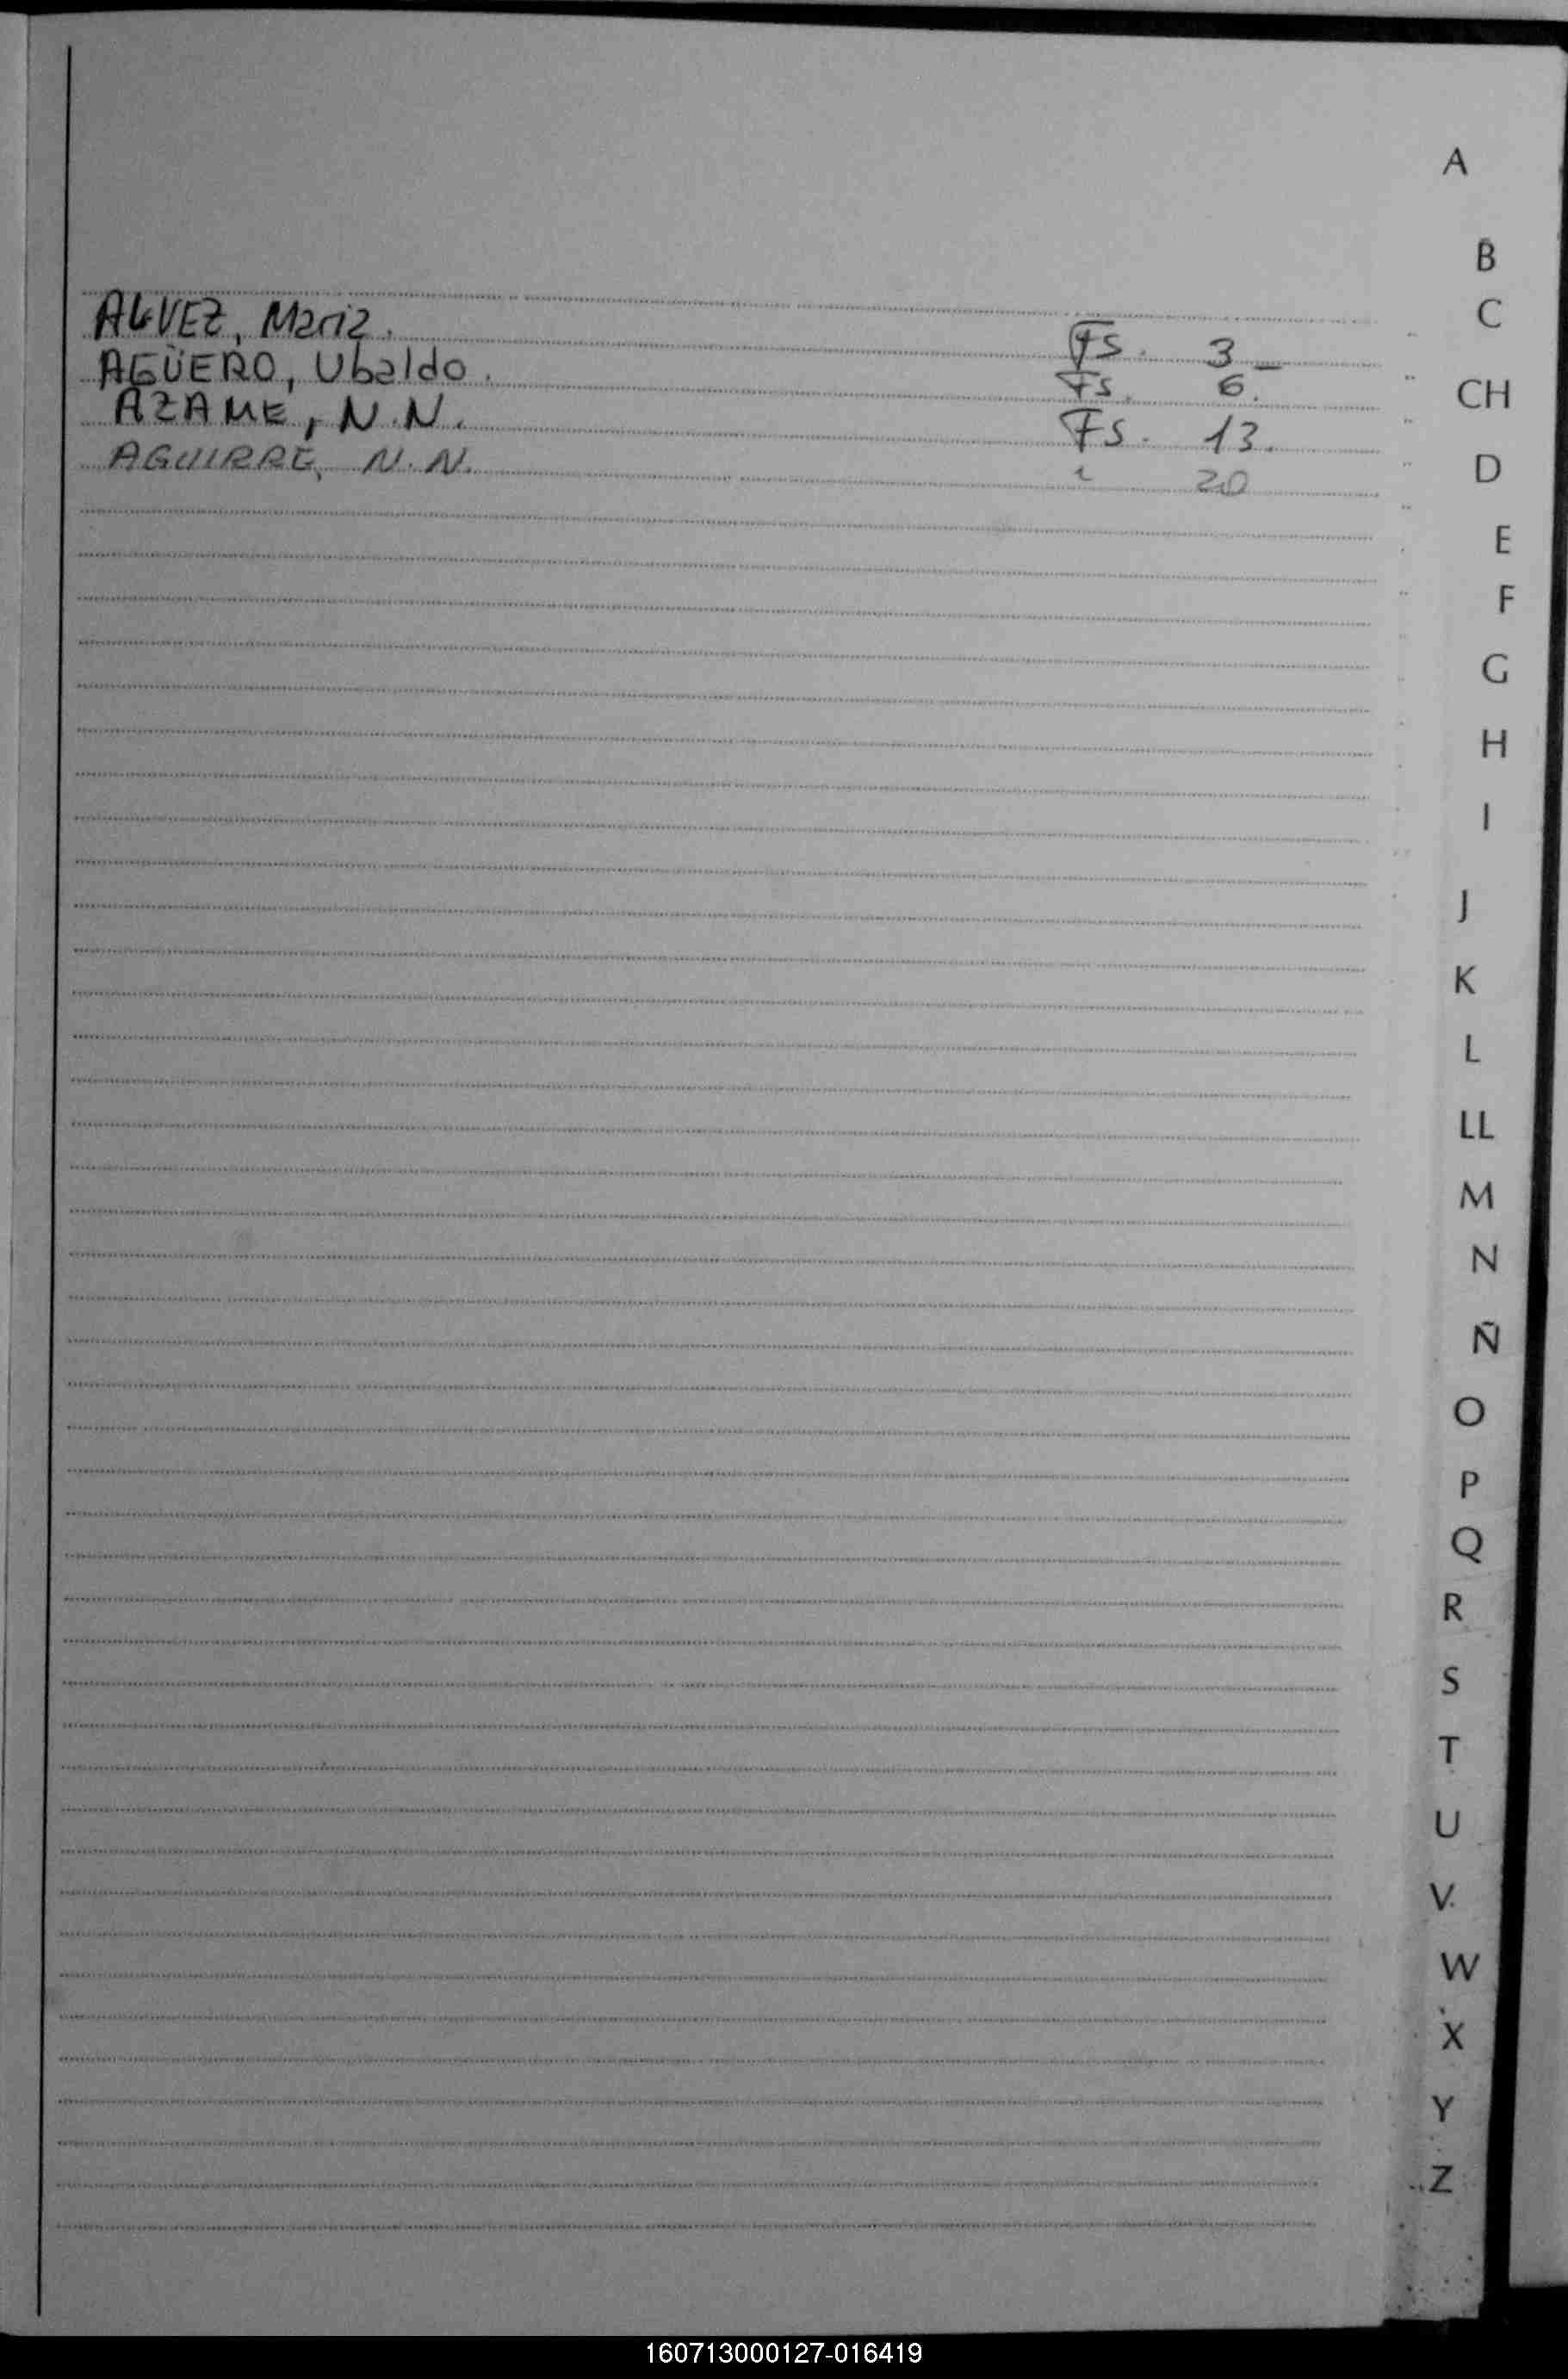 ALVEZ, Maria. Fs. 3_
AGÜERO, Ubaldo. Fs. 6.
AZAME, N.N. Fs. 13.
AGUIRRE, N.N. 20
A
B
C
CH
D
E
F
G
H
I
J
K
L
LL
M
N
Ñ
O
P
Q
R
S
T
U
V
W
X
Y
Z
160713000127-016419